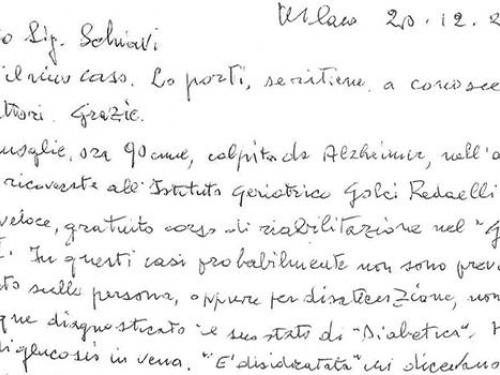 Milano 20.12.2
o Sig. Schiavi
il mio caso. Lo porti, se ritiene, a conosce
ttori. Grazie.
moglie, ora 90enne, colpita da Alzheimer, nell'a
ricoverata all'Istituto Geriatrico Golgi Redaelli
veloce, gratuito corso di riabilitazione nel "G
In questi casi probabilmente non sono prev
to sulla persona, oppure per disattenzione, non
que diagnosticato il suo stato di "Diabetica".
di glucosio in vena. "E' disidratata" mi dicevano